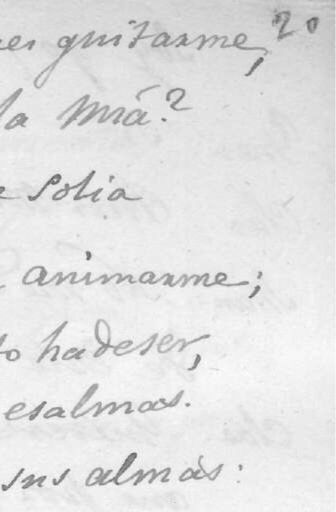 quitarme, 20
la Mia?
e solia
animarme;
to hadeser,
esalmas.
sus almas: